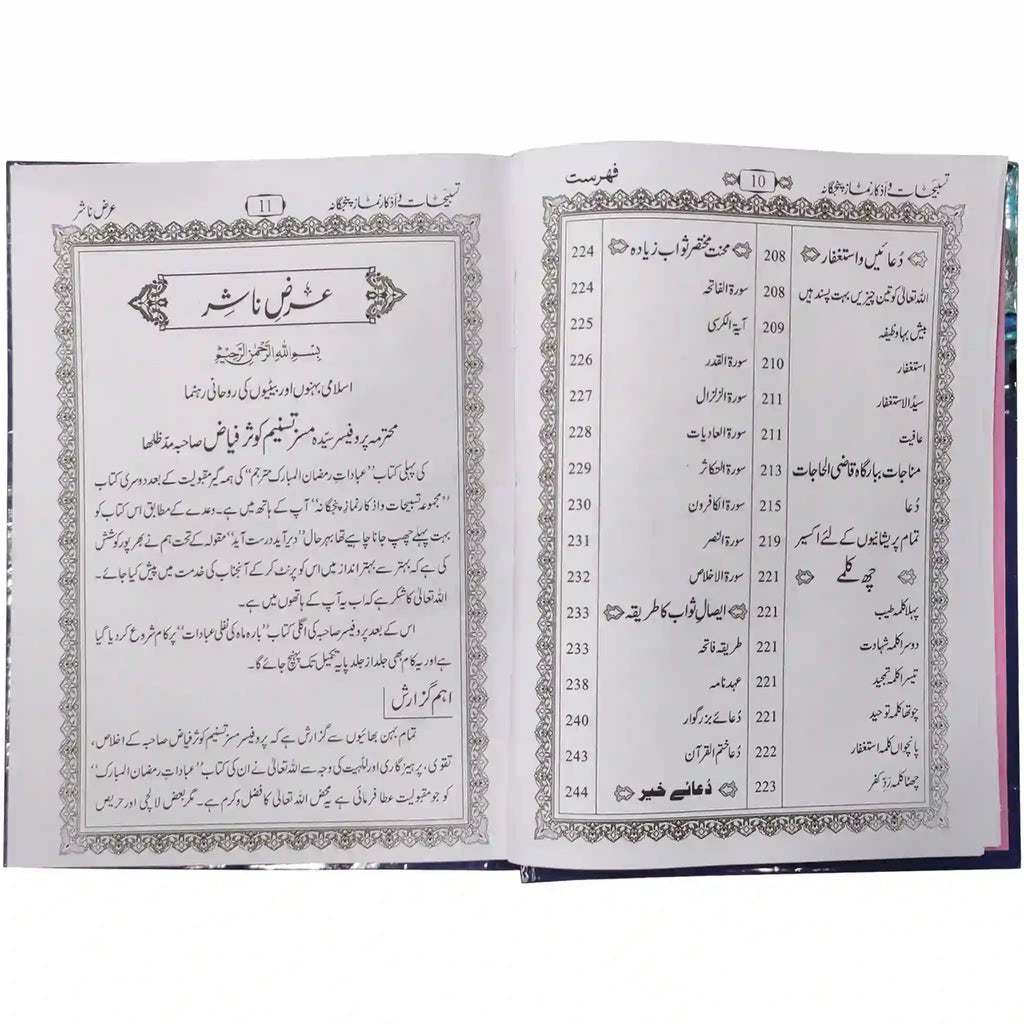 تسبیحات و اذکار نماز پنجگانہ 10 فہرست
دُعائیں و استغفار 208
اللہ تعالیٰ کو تین چیزیں بہت پسند ہیں 208
بیش بہا وظیفہ 209
استغفار 210
سیدُ الاستغفار 211
عافیت 211
مناجات ببارگاہ قاضی الحاجات 213
دُعا 215
تمام پریشانیوں کے لئے اکسیر 219
چھ کلمے 221
پہلا کلمہ طیب 221
دوسرا کلمہ شہادت 221
تیسرا کلمہ تمجید 221
چوتھا کلمہ توحید 221
پانچواں کلمہ استغفار 222
چھٹا کلمہ ردِّ کفر 223
محنت مختصر ثواب زیادہ 224
سورۃ الفاتحہ 224
آیۃ الکرسی 225
سورۃ القدر 226
سورۃ الزلزال 227
سورۃ العادیات 228
سورۃ التکاثر 229
سورۃ الکافرون 230
سورۃ النصر 231
سورۃ الاخلاص 232
ایصالِ ثواب کا طریقہ 233
طریقہ فاتحہ 233
عہد نامہ 238
دُعائے بزرگوار 240
دُعا ختم القرآن 243
دُعائے خیر 244
تسبیحات و اذکار نماز پنجگانہ 11 عرض ناشر
عرضِ ناشر
بِسْمِ اللهِ الرَّحْمٰنِ الرَّحِيْمِ
اسلامی بہنوں اور بیٹیوں کی روحانی رہنما
محترمہ پروفیسر سیّدہ مسز تسنیم کوثر فیاض صاحبہ مدظلہا
کی پہلی کتاب ”عباداتِ رمضان المبارک مترجم“ کی ہمہ گیر مقبولیت کے بعد دوسری کتاب
”مجموعہ تسبیحات و اذکار نمازِ پنجگانہ“ آپ کے ہاتھ میں ہے۔ وعدے کے مطابق اس کتاب کو
بہت پہلے چھپ جانا چاہیے تھا بہرحال ”دیر آید درست آید“ مقولہ کے تحت ہم نے بھرپور کوشش
کی ہے کہ بہتر سے بہتر انداز میں اس کو پرنٹ کر کے آنجناب کی خدمت میں پیش کیا جائے۔
اللہ تعالیٰ کا شکر ہے کہ اب یہ آپ کے ہاتھوں میں ہے۔
اس کے بعد پروفیسر صاحبہ کی اگلی کتاب ”بارہ ماہ کی نفلی عبادات“ پر کام شروع کر دیا گیا
ہے اور یہ کام بھی جلد از جلد پایہ تکمیل تک پہنچ جائے گا۔
اہم گزارش
تمام بہن بھائیوں سے گزارش ہے کہ پروفیسر مسز تسنیم کوثر فیاض صاحبہ کے اخلاص،
تقویٰ، پرہیزگاری اور للّٰہیت کی وجہ سے اللہ تعالیٰ نے ان کی کتاب ”عباداتِ رمضان المبارک“
کو جو مقبولیت عطا فرمائی ہے یہ محض اللہ تعالیٰ کا فضل و کرم ہے۔ مگر بعض لالچی اور حریص